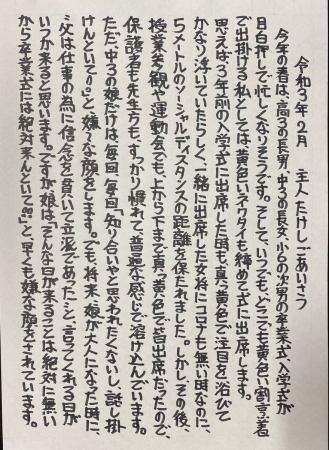 令和3年2月　主人たけしごあいさつ
今年の春は、高3の長男、中3の長女、小6の次男の卒業式、入学式が
目白押しで忙しくなりそうです。そして、いつでも、どこでも黄色い割烹着
で出掛ける私としては黄色いネクタイも締めて式に出席します。
思えば3年前の入学式に出席した時も、真っ黄色で注目を浴びて
かなり浮いていたらしく、一緒に出席した女将にコロナも無い時なのに、
5メートルのソーシャルディスタンスの距離を保たれました。しかし、その後、
授業参観や運動会でも、上から下まで真っ黄色で皆出席だったので、
保護者も先生方も、すっかり慣れて、普通な感じで溶け込んでいます。
ただ、中3の娘だけは、毎回、毎回「知り合いやと思われたくないし、話し掛
けんといて。」と嫌な顔をします。でも、将来、娘が大人になった時に、
「父は仕事の為に信念を貫いて立派であった…」と言ってくれる日が
いつか来ると思います。ですが娘は「そんな日が来ることは絶対に無い
から卒業式には絶対来んといて。」と、早くも嫌な顔をされています。